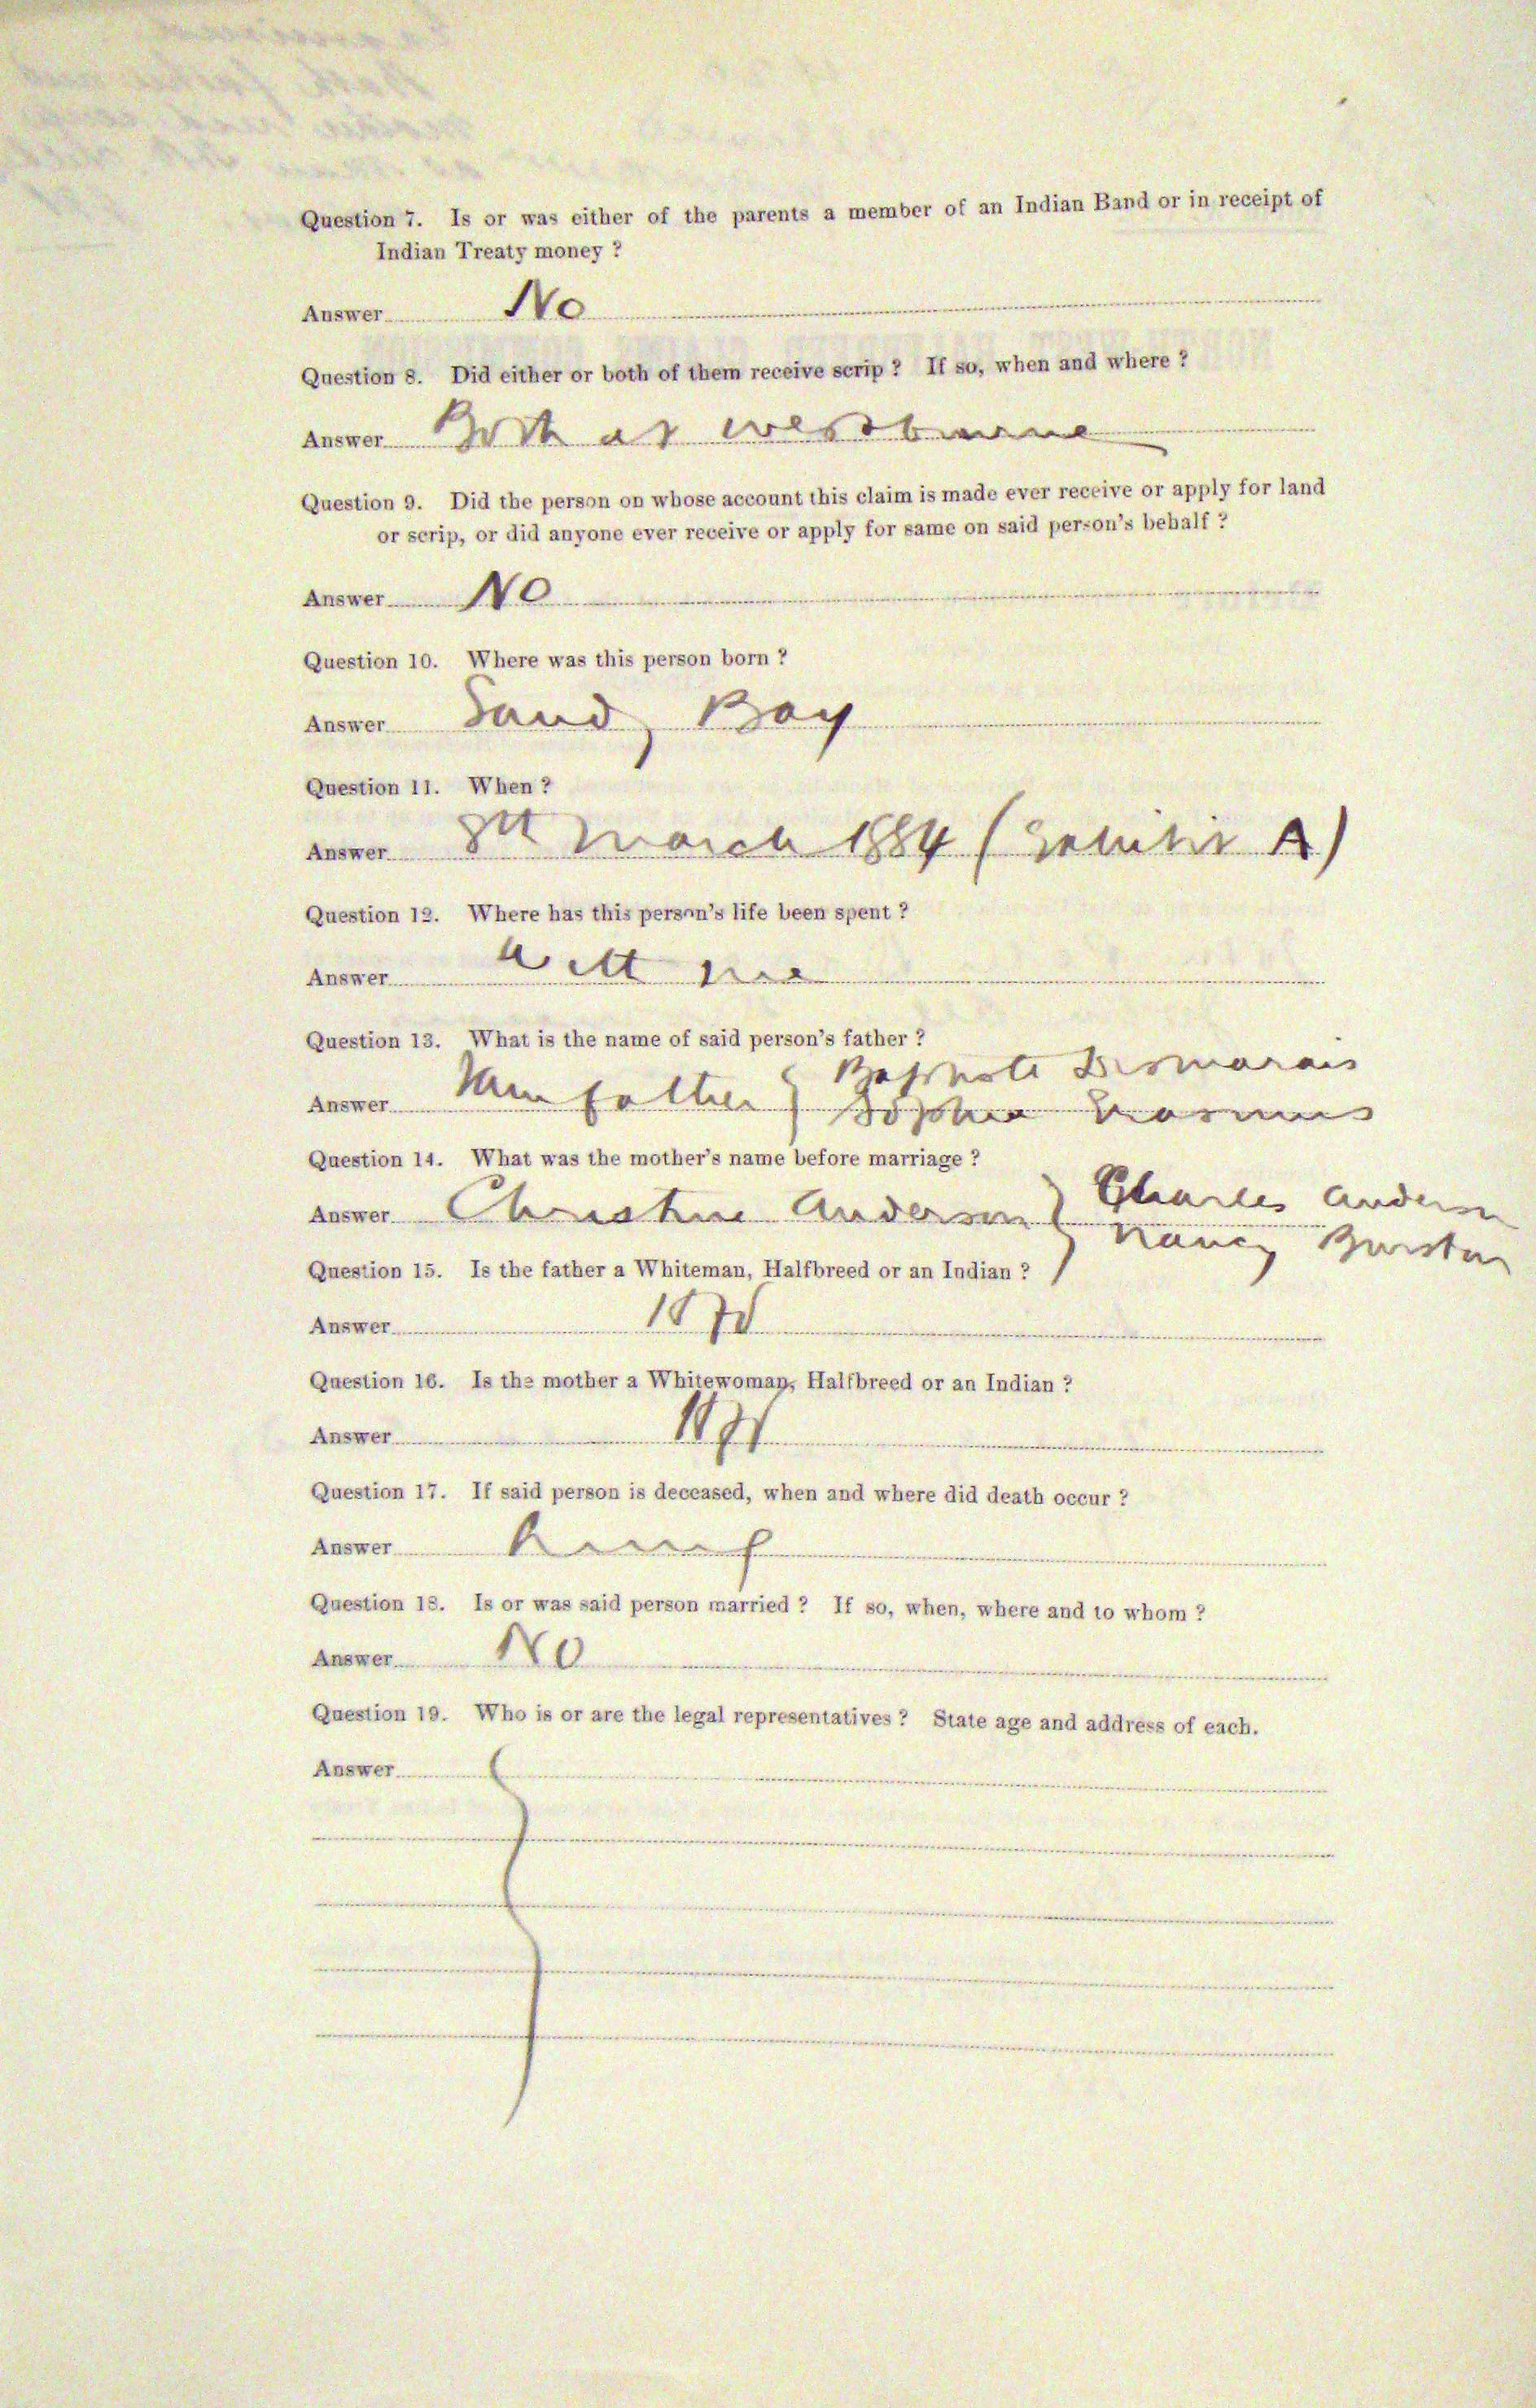 Question 7. Is or was either of the parents a member of an Indian Band or in receipt of
Indian Treaty money ?
Answer No
Question 8. Did either or both of them receive scrip ? If so, when and where ?
Answer Both at Westbourne
Question 9. Did the person on whose account this claim is made ever receive or apply for land
or scrip, or did anyone ever receive or apply for same on said person's behalf ?
Answer No
Question 10. Where was this person born ?
Answer Sandy Bay
Question 11. When ?
Answer 8th March 1884 ( A)
Question 12. Where has this person's life been spent ?
Answer with me
Question 13. What is the name of said person's father ?
Baptiste Desmarais
Answer I am father } Sophie
Question 14. What was the mother's name before marriage ?
Charles Anderson
Answer Christine Anderson } Nancy
Question 15. Is the father a Whiteman, Halfbreed or an Indian ?
Answer
Question 16. Is the mother a Whitewoman, Halfbreed or an Indian ?
Answer
Question 17. If said person is deceased, when and where did death occur ?
Answer
Question 18. Is or was said person married ? If so, when, where and to whom ?
Answer No
Question 19. Who is or are the legal representatives ? State age and address of each.
Answer